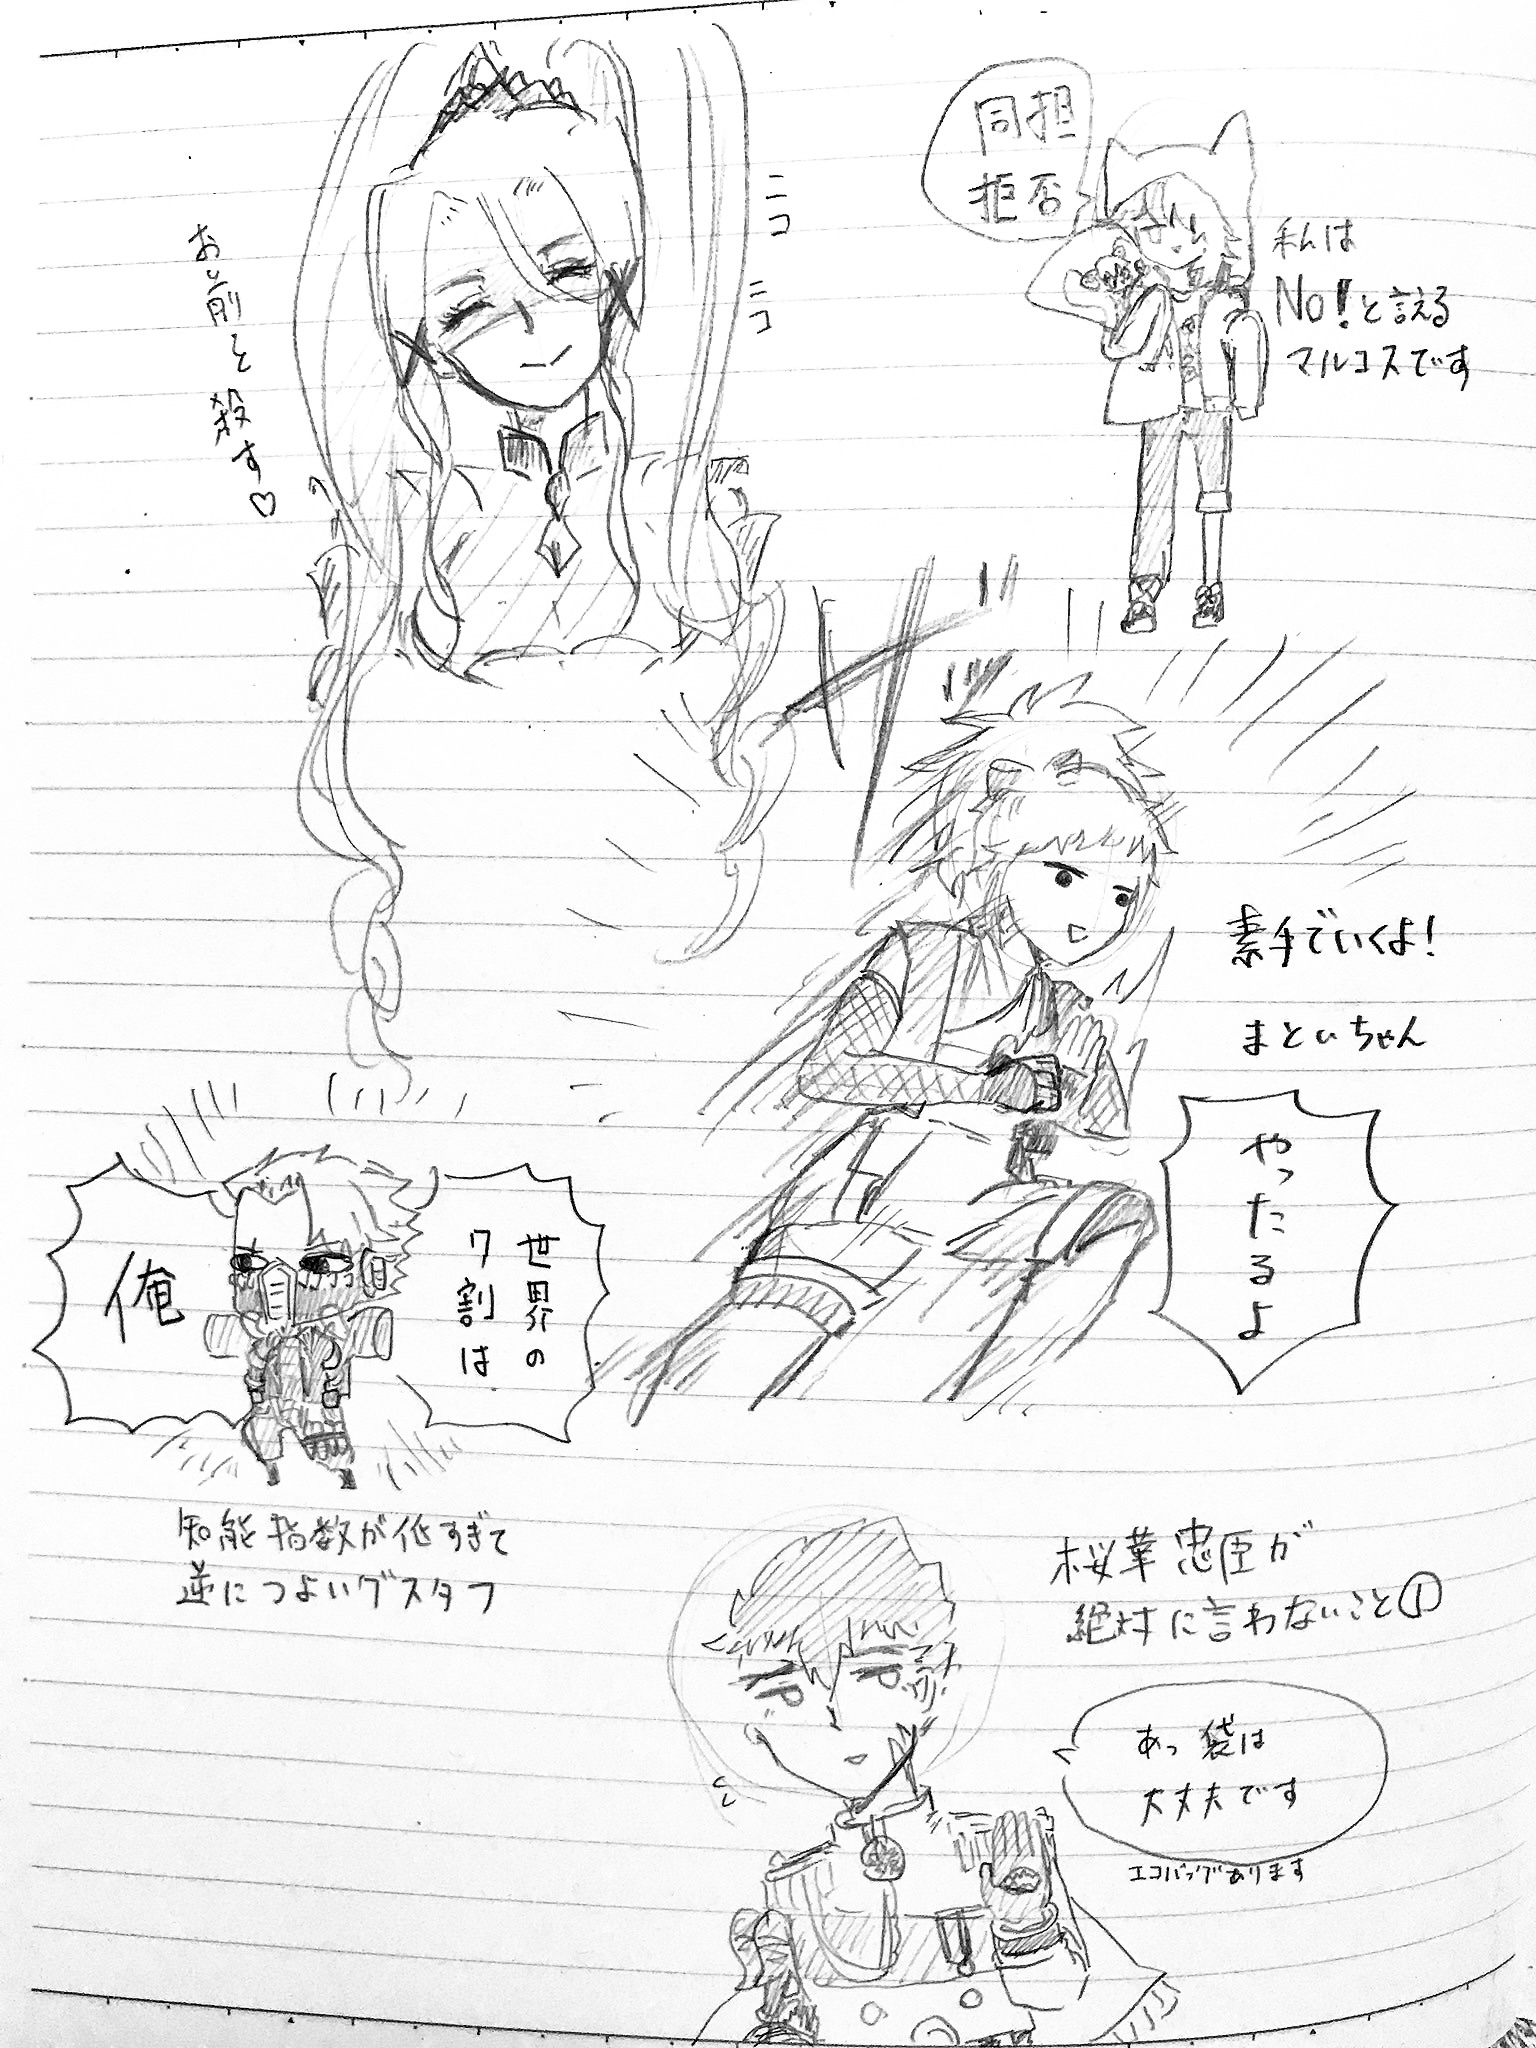 同担
拒否
私は
No!と言える
マルコスです
ニコ
ニコ
お前を殺す♡
バ
素手でいくよ!
まといちゃん
やったるよ
世界の
7割は
俺
知能指数が低すぎて
逆につよいグスタフ
桜華忠臣が
絶対に言わないこと①
あっ袋は
大丈夫です
エコバッグあります